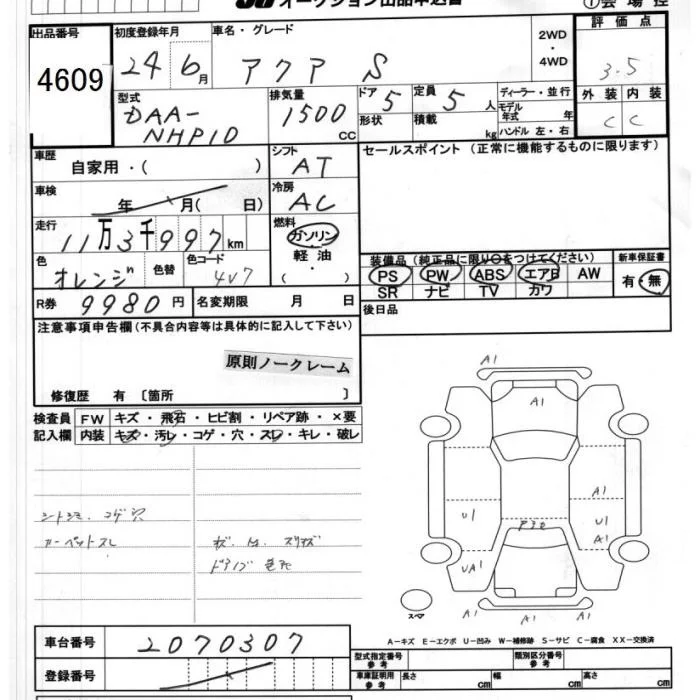 オークション出品申込書
①会場控
出品番号
4609
初度登録年月
24 6月
車名・グレード
アクア S
2WD・4WD
評価点
3.5
外装 内装
C C
型式
DAA-
NHP10
排気量
1500 cc
ドア 5
形状
定員 5 人
積載 kg
ディーラー・並行
モデル年式 年
ハンドル 左・右
車歴
自家用・( )
シフト
AT
セールスポイント (正常に機能するものに限ります)
車検
年 月( 日)
冷房
AC
走行
11万3千997km
燃料
ガソリン
軽油
・( )
色
オレンジ
色替
色コード
4V7
装備品 (純正品に限り○をつけてください)
PS PW ABS エアB AW
SR ナビ TV カワ
新車保証書
有・無
R券 9980円
名変期限 月 日
後日品
注意事項申告欄(不具合内容等は具体的に記入して下さい)
原則ノークレーム
修復歴 有 〔箇所 〕
検査員記入欄
FW キズ・飛石・ヒビ割・リペア跡・×要
内装 キズ・汚レ・コゲ・穴・スレ・キレ・破レ
シートシミ.コゲ穴
カーペットスレ
A1
A1
A1
U1
U1
A1
UA1
A1
A1
A1
スペア
A-キズ E-エクボ U-凹み W-補修跡 S-サビ C-腐食 XX-交換済
車台番号
2070307
登録番号
型式指定番号
参考
類別区分番号
参考
車庫証明用
参考
長さ cm 幅 cm 高さ cm